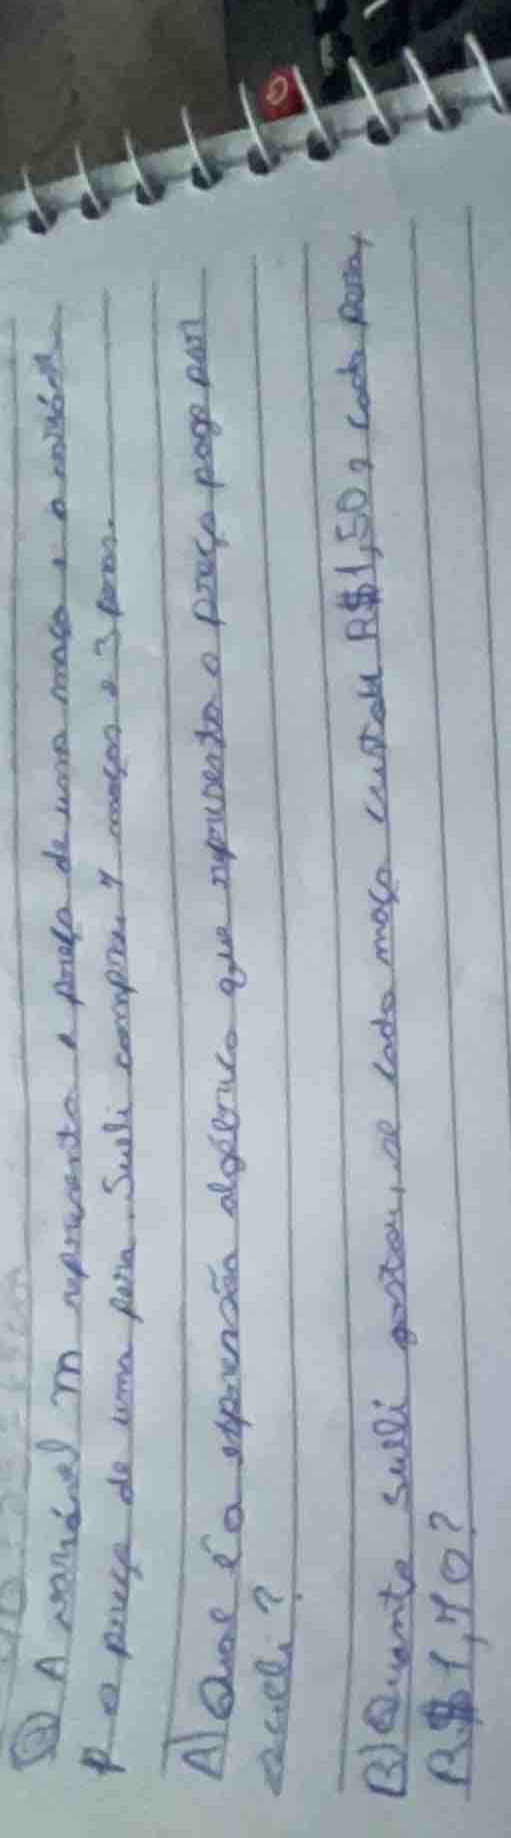 A variável m representa o preço de uma maça e a variável
p o preço de uma pera. Sueli comprou 7 maças e 3 peras.
A) Qual é a expressão algébrica que representa o preço pago por
sueli?
B) Quanto Sueli gastou, se cada maça custar R$1,50 e cada pera,
R$1,70?